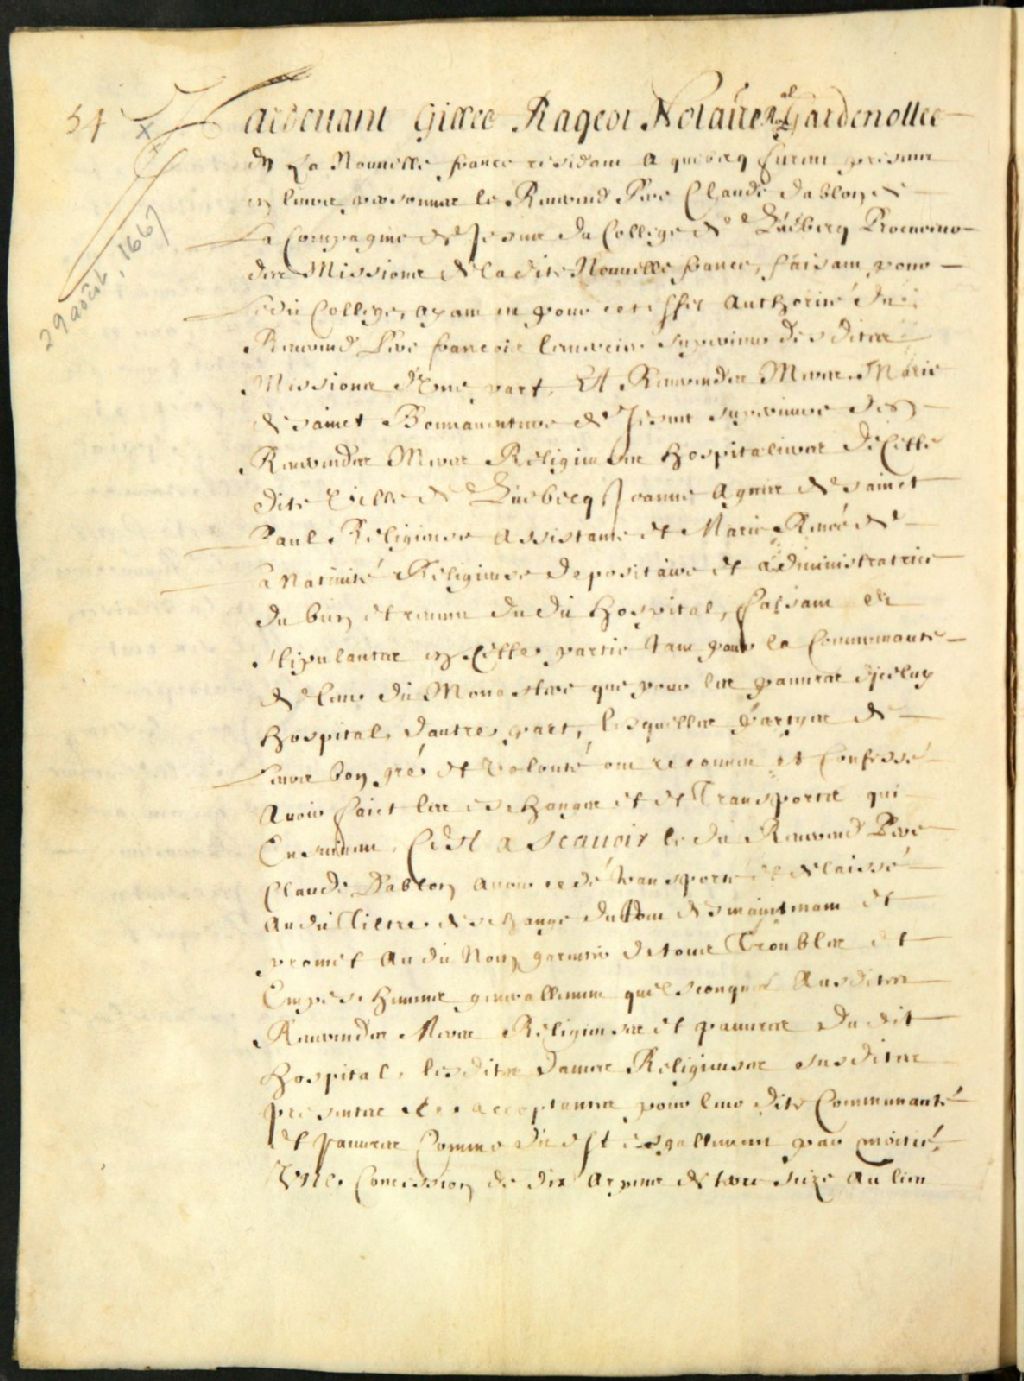 54
29 août, 1667
Pardevant Gilles Rageot Notaire Ral Gardenottes
En La Nouuelle france residant a quebecq furent presents
en leurs personnes le Reuerend Pere Claude Dablon de
La Compagnie de Jesus du College de Quebecq Procureur
des Missions de ladite Nouuelle france, faisant pour
ledit College, ayant en pour cet effet Authorité du
Reuerend Pere francois lemercier superieur desdites
Missions d'Vne part, Et Reuerendes Meres Marie
de sainct Bonnauenture de Jesus superieure des
Reuerendes Meres Religieuses Hospitalieres de Cette
dite Ville de Quebecq, Jeanne Agnes de sainct
Paul Religieuse Assistante et Marie Renée de
La Natiuité Religieuse depositaire et administratrice
du bien et reuenu dudit Hospital, faisant et
stipulantes en Cette partie tant pour la Communauté
de leur dit Monastere que pour les pauures d'jceluy
Hospital, d'autre part, lesquelles partyes de
leurs bon gré et Volonté ont reconnu et Confessé
Auoir faict les eschanges et Transports qui
Ensuiuent, C'est a scauoir ledit Reuerend Pere
Claude Dablon auoir cedé transporté et delaissé
Audit Tiltre d'eschange du tout des maintenant et
promet Audit Nom garentir de tous Troubles et
Empeschemens generallement quelsconques Ausdites
Reuerendes Meres Religieuses et pauures dudit
Hospital, lesdites dames Religieuses susdites
presentes et acceptantes pour leur dite Communauté
et pauures Comme dit est esgallement par moitié,
Vne Concession de dix arpens de terre size au lieu